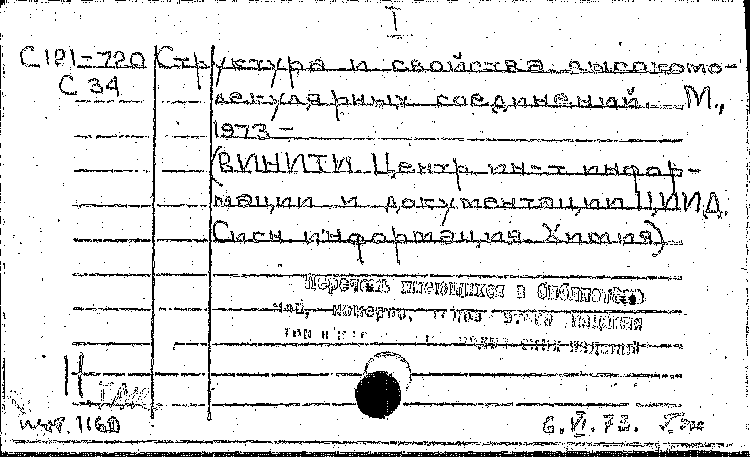 I
С181-720 Структура и свойства высокомо-
С 34 лекулярных соединений. М.,
1973 -
(ВИНИТИ Центр ин-т инфор-
мации и документации ЦИИД.
Сигн информация. Химия)
Перечень имеющихся в библиотеке
номеров, изданий
Н
инт. 1160
6.VI.73.